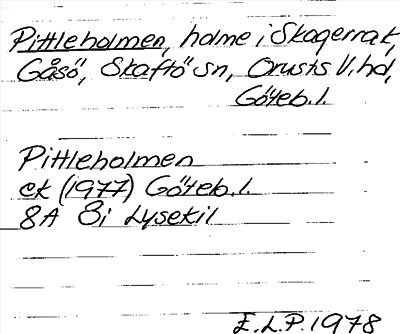 Pittleholmen, holme i Skagerrak,
Gåsö, Skaftö sn, Orusts V. hd,
Göteb. l.
Pittleholmen
ek (1977) Göteb. l.
8A 8i Lysekil
E.L.P. 1978